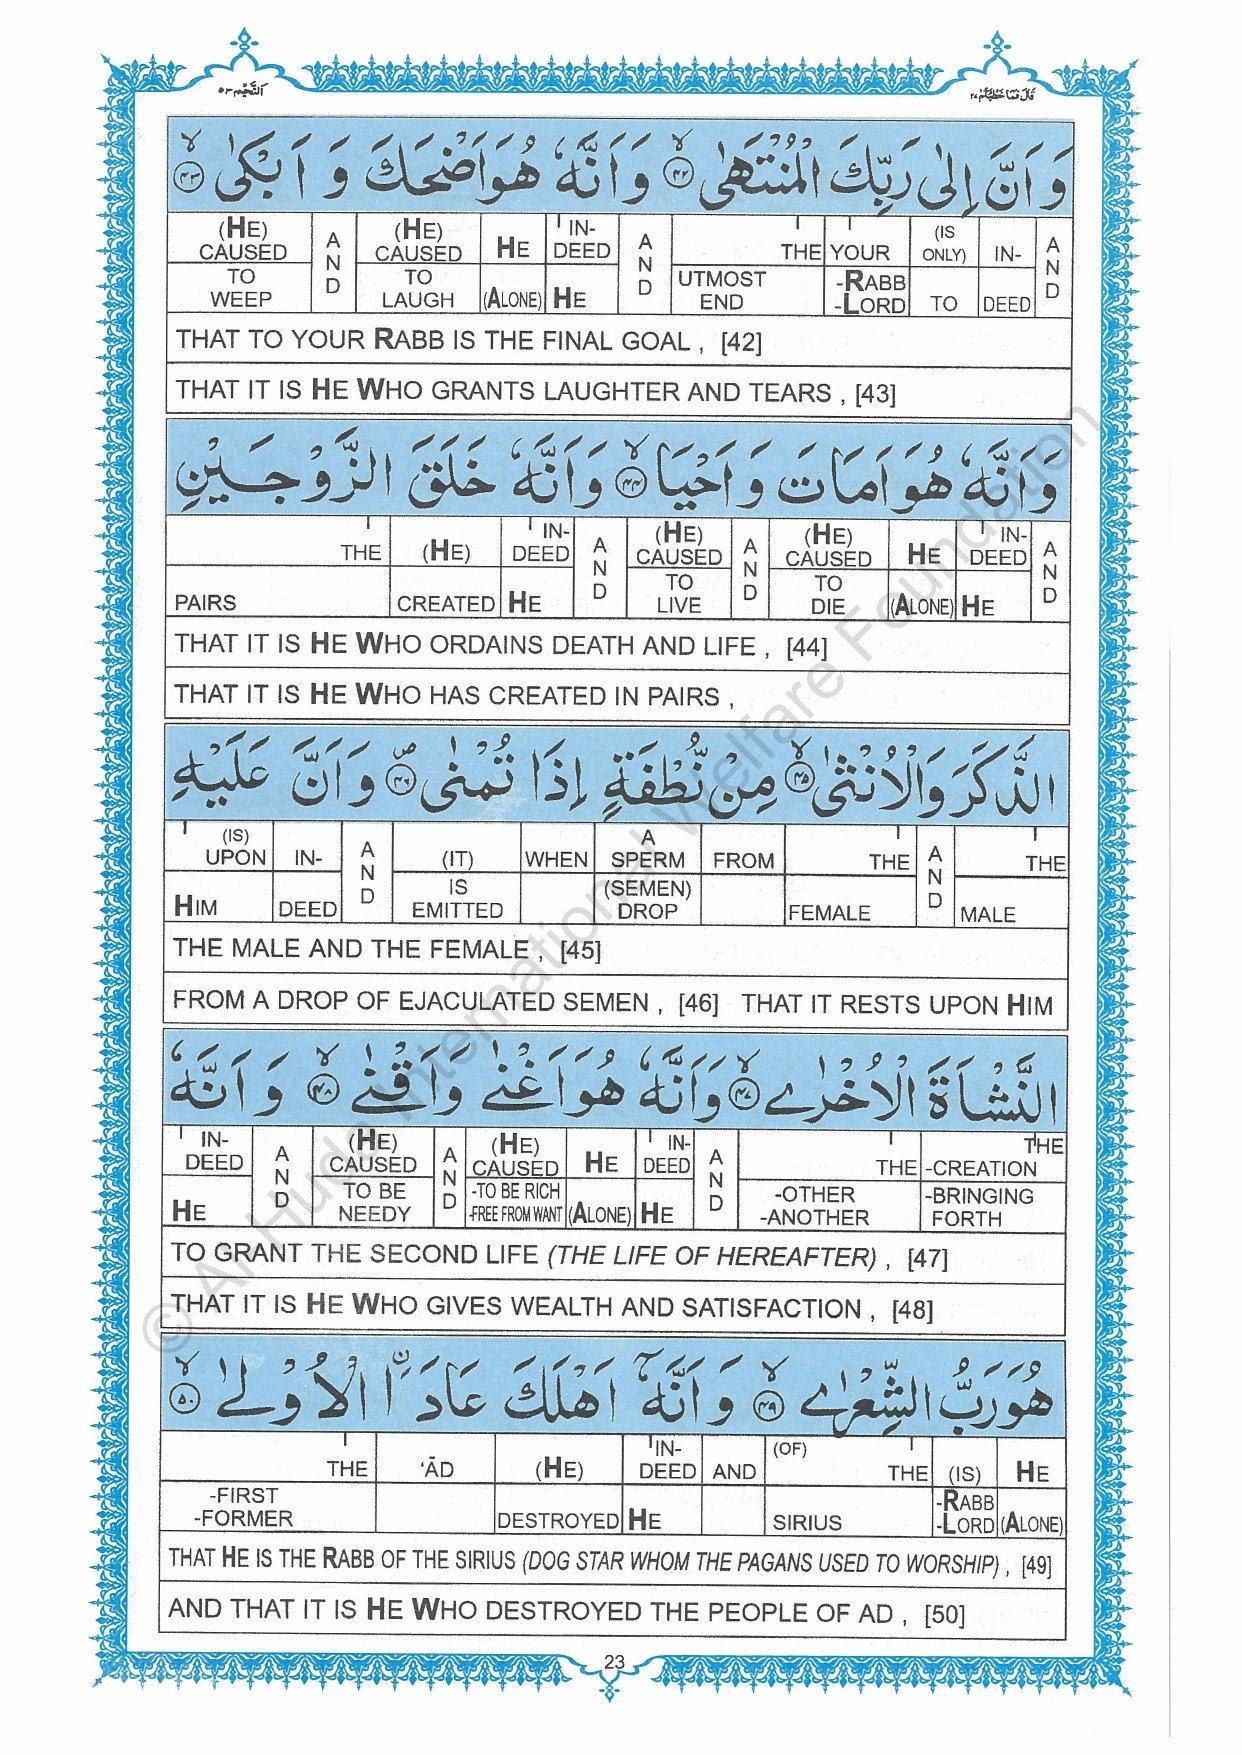 اَلنَّجْم ٥٣
قَالَ فَمَا خَطْبُكُمْ ٢٧
وَ اَنَّ اِلٰى رَبِّكَ الْمُنْتَهٰى ﴿٤٢﴾ وَ اَنَّهٗ هُوَ اَضْحَكَ وَ اَبْكٰى ﴿٤٣﴾
(HE) CAUSED TO WEEP | AND | (HE) CAUSED TO LAUGH | HE (ALONE) | IN-DEED HE | AND | THE UTMOST END | YOUR -RABB -LORD | (IS ONLY) TO | IN-DEED | AND
THAT TO YOUR RABB IS THE FINAL GOAL , [42]
THAT IT IS HE WHO GRANTS LAUGHTER AND TEARS , [43]
وَ اَنَّهٗ هُوَ اَمَاتَ وَ اَحْيَا ﴿٤٤﴾ وَ اَنَّهٗ خَلَقَ الزَّوْجَيْنِ
THE PAIRS | (HE) CREATED | IN-DEED HE | AND | (HE) CAUSED TO LIVE | AND | (HE) CAUSED TO DIE | HE (ALONE) | IN-DEED HE | AND
THAT IT IS HE WHO ORDAINS DEATH AND LIFE , [44]
THAT IT IS HE WHO HAS CREATED IN PAIRS ,
الذَّكَرَ وَالْاُنْثٰى ﴿٤٥﴾ مِنْ نُّطْفَةٍ اِذَا تُمْنٰى ﴿٤٦﴾ وَ اَنَّ عَلَيْهِ
(IS) UPON HIM | IN-DEED | AND | (IT) IS EMITTED | WHEN | A SPERM (SEMEN) DROP | FROM | THE FEMALE | AND | THE MALE
THE MALE AND THE FEMALE , [45]
FROM A DROP OF EJACULATED SEMEN , [46] THAT IT RESTS UPON HIM
النَّشْاَةَ الْاُخْرٰى ﴿٤٧﴾ وَ اَنَّهٗ هُوَ اَغْنٰى وَ اَقْنٰى ﴿٤٨﴾ وَ اَنَّهٗ
IN-DEED HE | AND | (HE) CAUSED TO BE NEEDY | AND | (HE) CAUSED -TO BE RICH -FREE FROM WANT | HE (ALONE) | IN-DEED HE | AND | THE -OTHER -ANOTHER | THE -CREATION -BRINGING FORTH
TO GRANT THE SECOND LIFE (THE LIFE OF HEREAFTER) , [47]
THAT IT IS HE WHO GIVES WEALTH AND SATISFACTION , [48]
هُوَ رَبُّ الشِّعْرٰى ﴿٤٩﴾ وَ اَنَّهٗٓ اَهْلَكَ عَادَا ۨ الْاُوْلٰى ﴿٥٠﴾
THE -FIRST -FORMER | ‘ĀD | (HE) DESTROYED | IN-DEED HE | AND | (OF) THE SIRIUS | (IS) -RABB -LORD | HE (ALONE)
THAT HE IS THE RABB OF THE SIRIUS (DOG STAR WHOM THE PAGANS USED TO WORSHIP) , [49]
AND THAT IT IS HE WHO DESTROYED THE PEOPLE OF AD , [50]
23
© Al Huda International Welfare Foundation